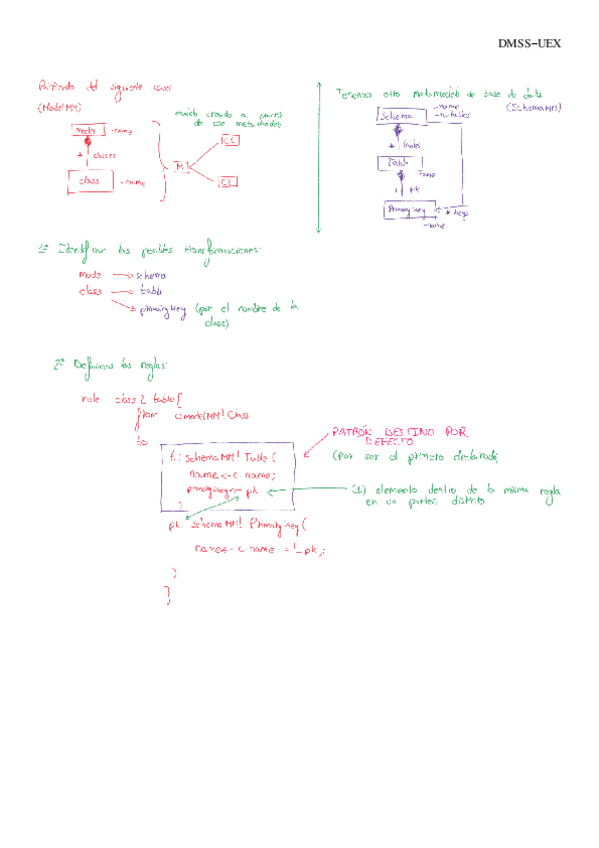 DMSS-UEX
Partiendo del siguiente
(ModelMM)
modelo creado a partir
de ese metamodelo
model
-name
* clases
class
-name
M1
C1
C2
Tenemos otro Metamodelo de base de datos
(SchemaMM)
Schema
-name
* tables
Table
name
1 pk
PrimaryKey
* keys
-name
1º Identificar las posibles transformaciones:
model → schema
class → table
→ primarykey (por el nombre de la
clase)
2º Definimos las reglas:
rule class2table{
from c:modelMM!Class
to
t: schemaMM!Table (
name <- c.name;
primarykey <- pk
)
pk: schemaMM!PrimaryKey (
name <- c.name + '_pk;
)
}
PATRÓN DESTINO POR
DEFECTO
(Por ser el primero declarado)
(1) elemento dentro de la misma regla
en un patrón distinto